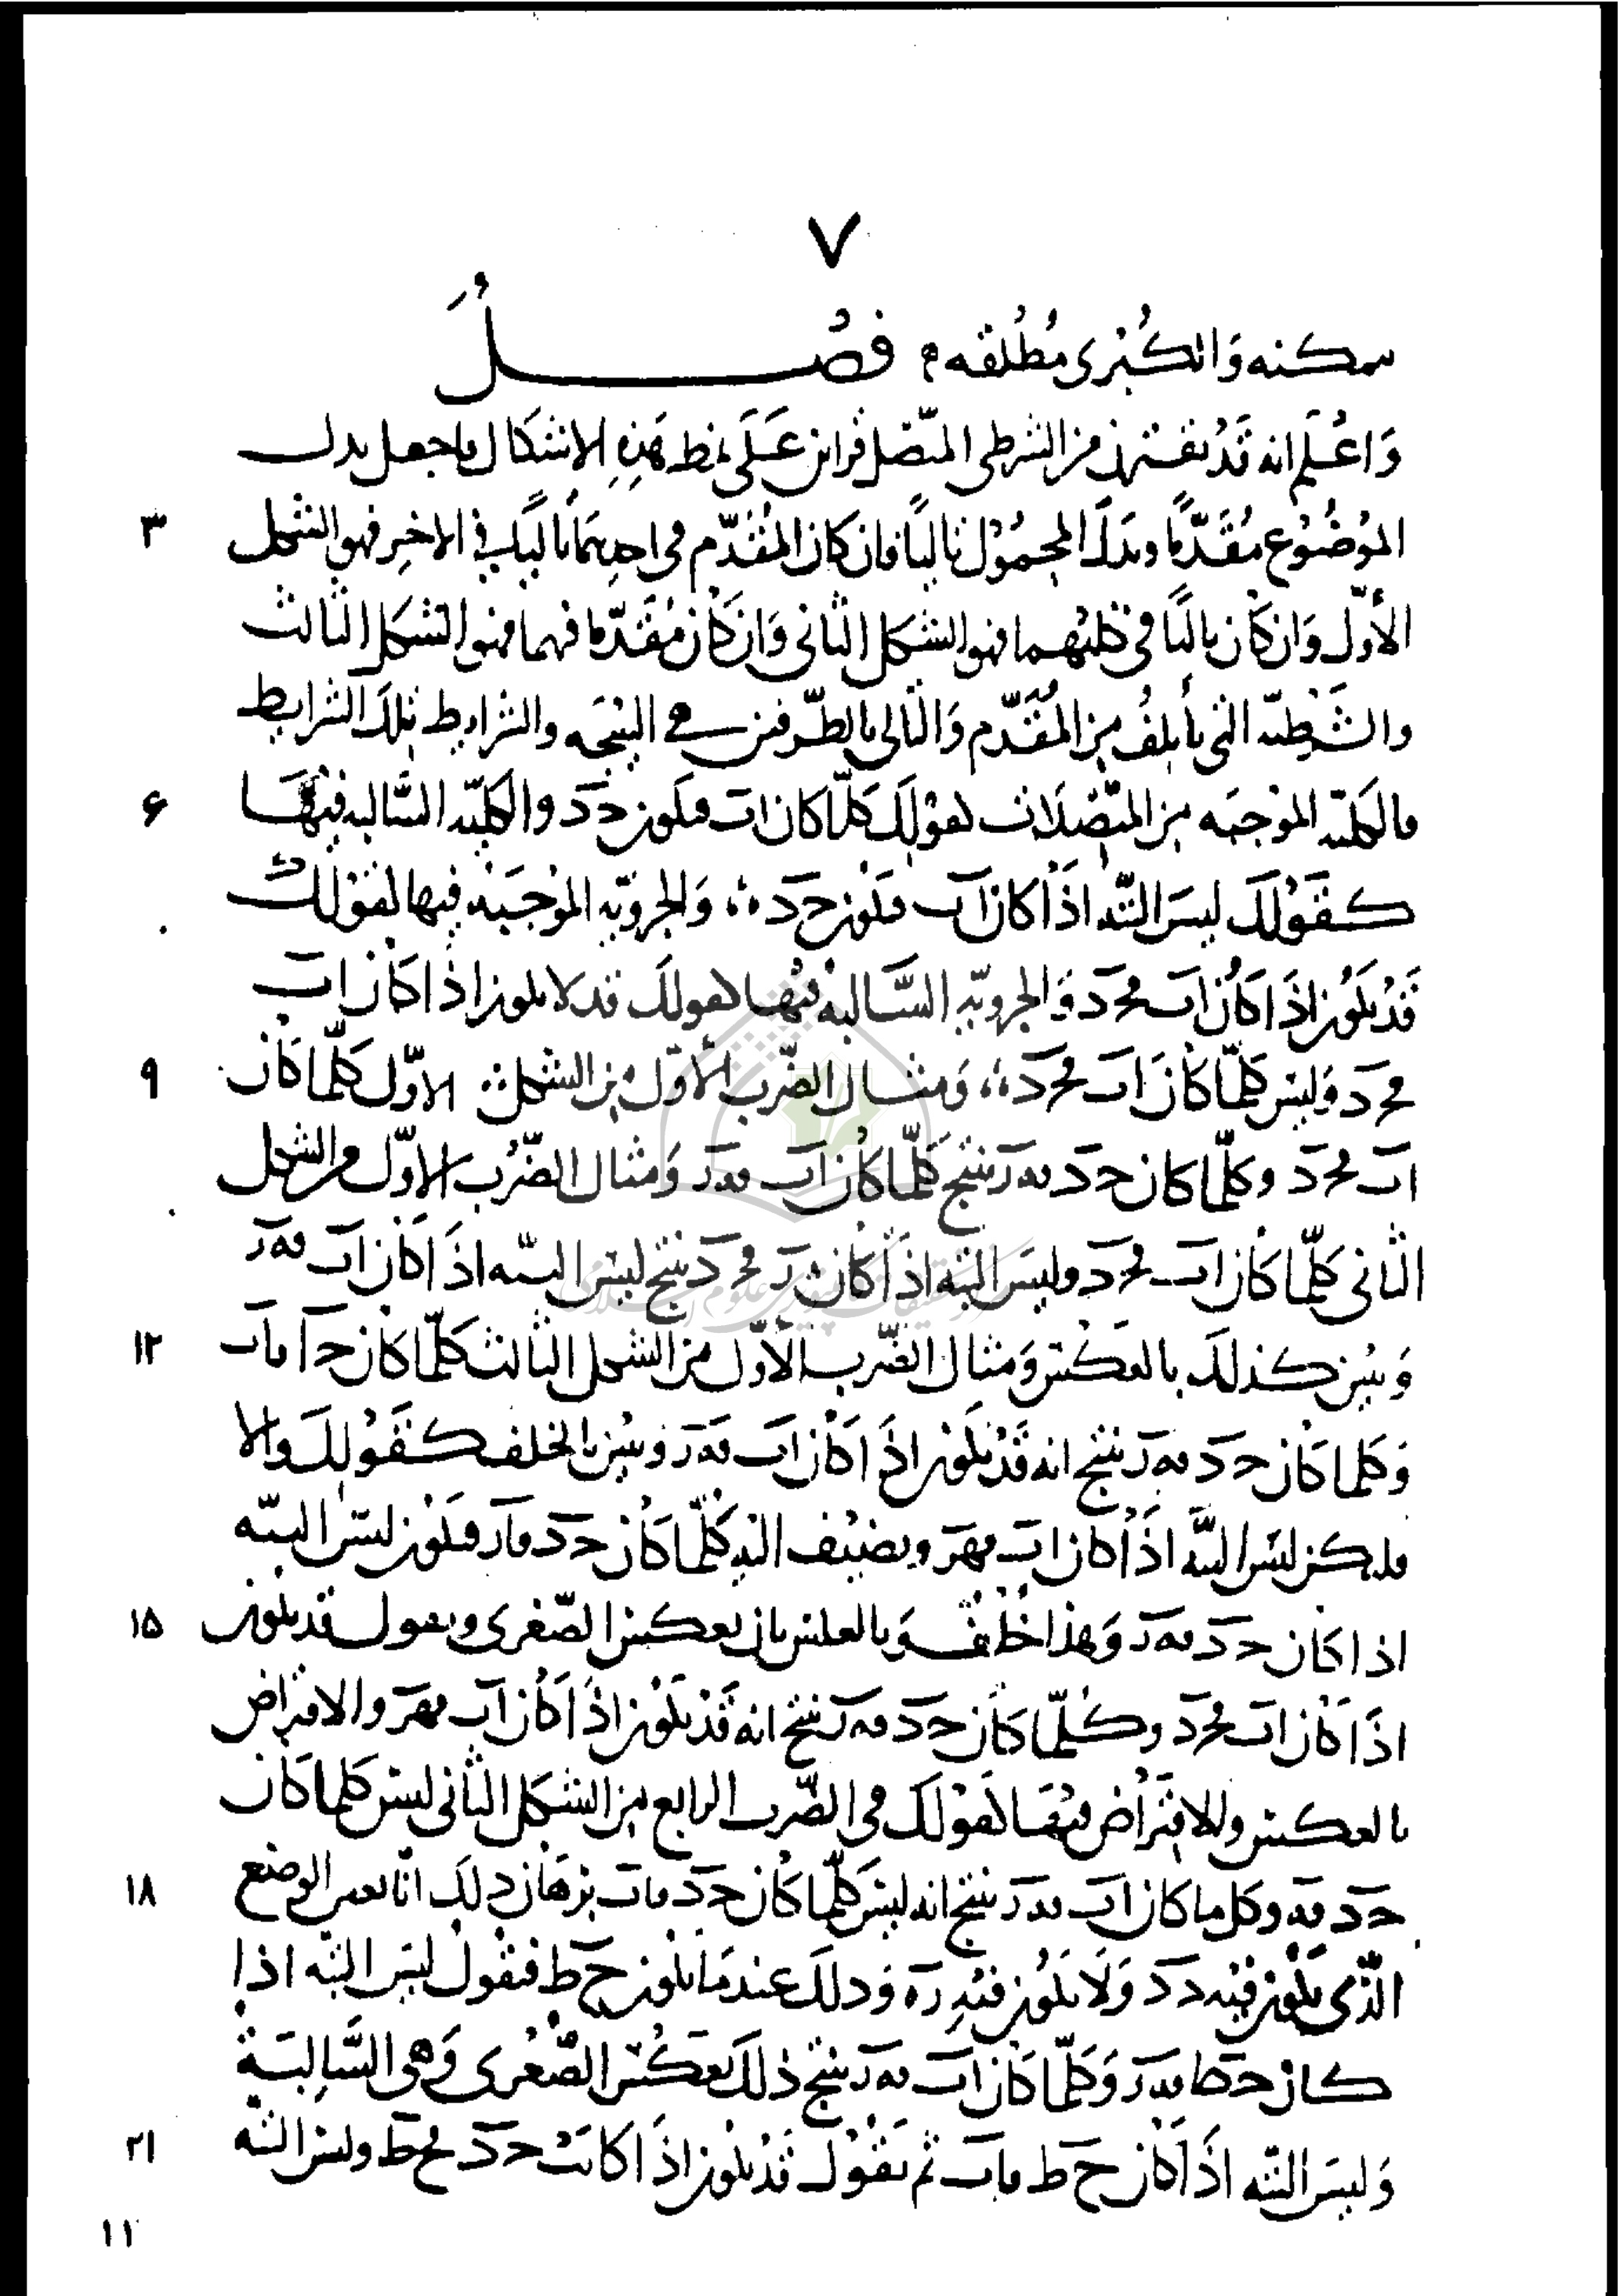 ٧
ممكنه وَالكُبْرى مُطْلقه ، فصْل
وَاعْلم انه قَدْ يقترن من الشرطى المتّصل قراين عَلَى نمط هَذِهِ الاشكال ما جعل بدل
٣ الموْضُوْع مُقَدّمًا وبدَلَ المحمُوْل تاليًا فان كان المُقدّم فى احدِيهمَا تاليًا فى الاخرِ فهو الشكل
الأوّل وَان كان تاليًا فى كليْهما فهو الشكل الثانى وَان كان مُقَدّما فيهما فهو الشكل الثالث
والشَرْطِيّه التى تأتلفُ مِن المُقَدّم وَالتّالى بالطّرفين فى النتيجَه والشرايط تلكَ الشرايط
٦ فالكليّه الموْجبَه مِن المتّصَلَات كقوْلِكَ كلّما كان اب فيكون جد والكليّه السّالبه فيهَا
كقَوْلِكَ ليسَ البتّه اذَا كان اب فيكون جد ، وَالجزويّه الموْجَبَه فيها كقوْلك
قَدْ يكُون اذَا كانَ اب فجد وَالجزويّه السّالبه فيْها كقولك قد لا يكون اذا كان اب
٩ فجد وَليس كلّما كان اب فجد ، وَمثال الضّرب الأوّل مِن الشكل الاوّل كلّما كان
اب فجد وكلّما كان جد فه‍ز ينتج كلّما كان اب فه‍ز وَمثال الضّرْب الاوّل من الشكل
الثانى كلّما كان اب فجد وليسَ البتّه اذَا كان ه‍ز فجد ينتج ليس البتّه اذَا كان اب فه‍ز
١٢ وَيبيّن كذلكَ بالعكْس وَمثال الضّرب الأوّل من الشكل الثالث كلّما كان جد فاب
وَكلما كان جد فه‍ز ينتج انه قَدْ يكون اذَا كان اب فه‍ز ويبيّن بالخلف كقَوْلِكَ والا
فليكن ليسَ البتّه اذَا كان اب فه‍ز ويضيْف اليْهِ كلّما كان جد فاب فيكون ليسَ البتّه
١٥ اذا كان جد فه‍ز وَهذا خلْف وَبالعكس بان يعكس الصّغرى ويقول قد يكون
اذَا كان اب فجد وكلّما كان جد فه‍ز ينتج انه قَدْ يكون اذَا كان اب فه‍ز والافتراض
بالعكس وللافتَراض فيْهَا كقوْلكَ فى الضّرب الرابع مِن الشكل الثانى ليسَ كلما كان
١٨ جد فه‍ز وكل ما كان اب فه‍ز ينتج انه ليسَ كلّما كان جد فاب برهَان ذلك انّا نعين الوضع
الّذى يكون فيْه جد وَلَا يكُون فيْهِ ه‍ز وَذلكَ عندمَا يكون حط فنقول ليسَ البتّه اذا
كان حط فه‍ز وَكلّما كان اب فه‍ز ينتج ذلكَ بعكس الصّغرى وَهى السَّالِبَة
٢١ وَليسَ البتّه اذَا كان حط فاب ثم نقُوْل قَدْ يكون اذَا كانت جد فحط وليس البتّه
١١